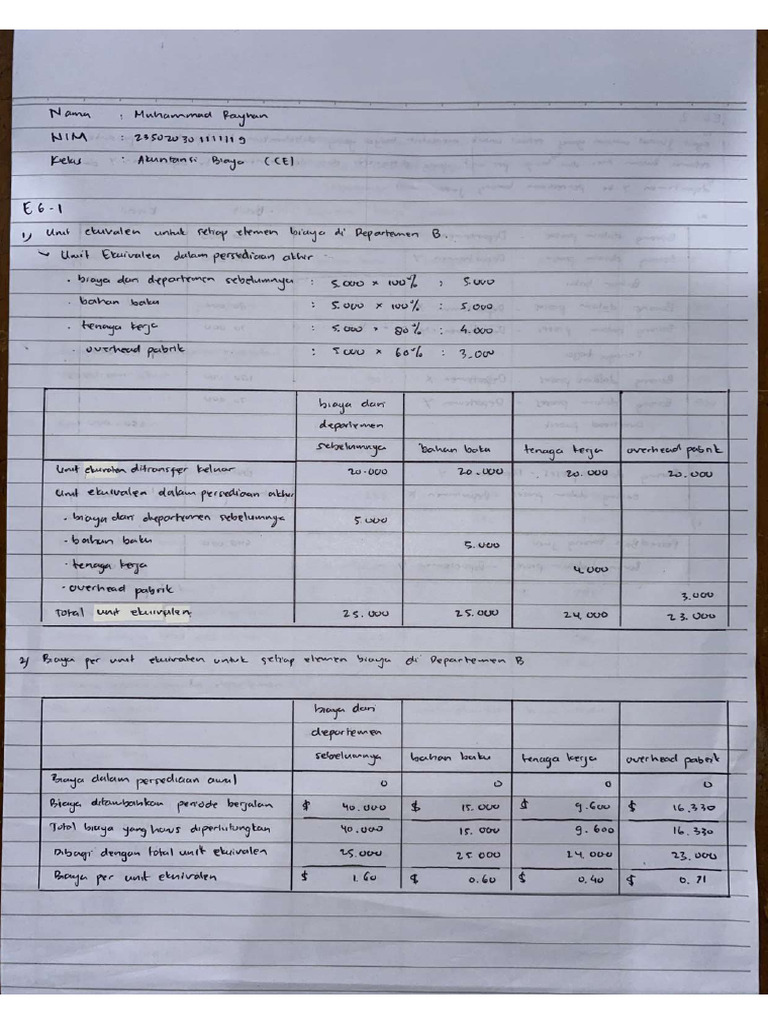 Nama : Muhammad Rayhan
NIM : 235020301111119
Kelas : Akuntansi Biaya (CE)
E 6-1
1) Unit ekuivalen untuk setiap elemen biaya di Departemen B.
Unit Ekuivalen dalam persediaan akhir
. biaya dari departemen sebelumnya : 5.000 × 100% : 5.000
. bahan baku : 5.000 × 100% : 5.000
. tenaga kerja : 5.000 × 80% : 4.000
. overhead pabrik : 5000 × 60% : 3.000
biaya dari
departemen
sebelumnya bahan baku tenaga kerja overhead pabrik
Unit ekuivalen ditransfer keluar 20.000 20.000 20.000 20.000
Unit ekuivalen dalam persediaan akhir
. biaya dari departemen sebelumnya 5.000
. bahan baku 5.000
. tenaga kerja 4.000
. overhead pabrik 3.000
Total unit ekuivalen 25.000 25.000 24.000 23.000
2) Biaya per unit ekuivalen untuk setiap elemen biaya di Departemen B
biaya dari
departemen
sebelumnya bahan baku tenaga kerja overhead pabrik
Biaya dalam persediaan awal 0 0 0 0
Biaya ditambahkan periode berjalan $ 40.000 $ 15.000 $ 9.600 $ 16.330
Total biaya yang harus diperhitungkan 40.000 15.000 9.600 16.330
Dibagi dengan total unit ekuivalen 25.000 25000 24.000 23.000
Biaya per unit ekuivalen $ 1.60 $ 0.60 $ 0.40 $ 0.71